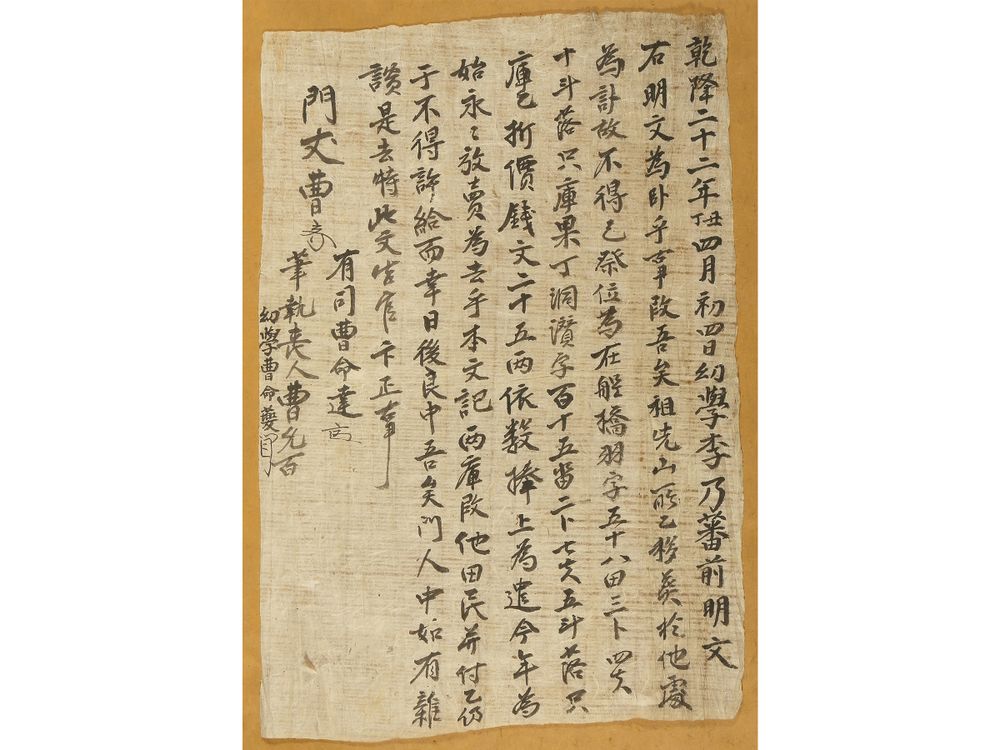 乾隆二十二年丁丑四月初四日幼學李乃蕃前明文
右明文爲臥乎事段吾矣祖先山所乙移葬於他處
爲計故不得已祭位爲在 橋羽字五十八田三卜四夫
十斗落只庫果丁洞讚字百十五畓二卜七夫五斗落只
庫乙折價錢文二十五兩依數捧上爲遣今年爲
始永〻放賣爲去乎本文記兩庫段他田民幷付乙仍
于不得許給而幸日後良中吾矣門人中如有雜
談是去等此文告官卞正事
門丈曹
有司曹命達
筆執喪人曹允百
幼學曹命夔